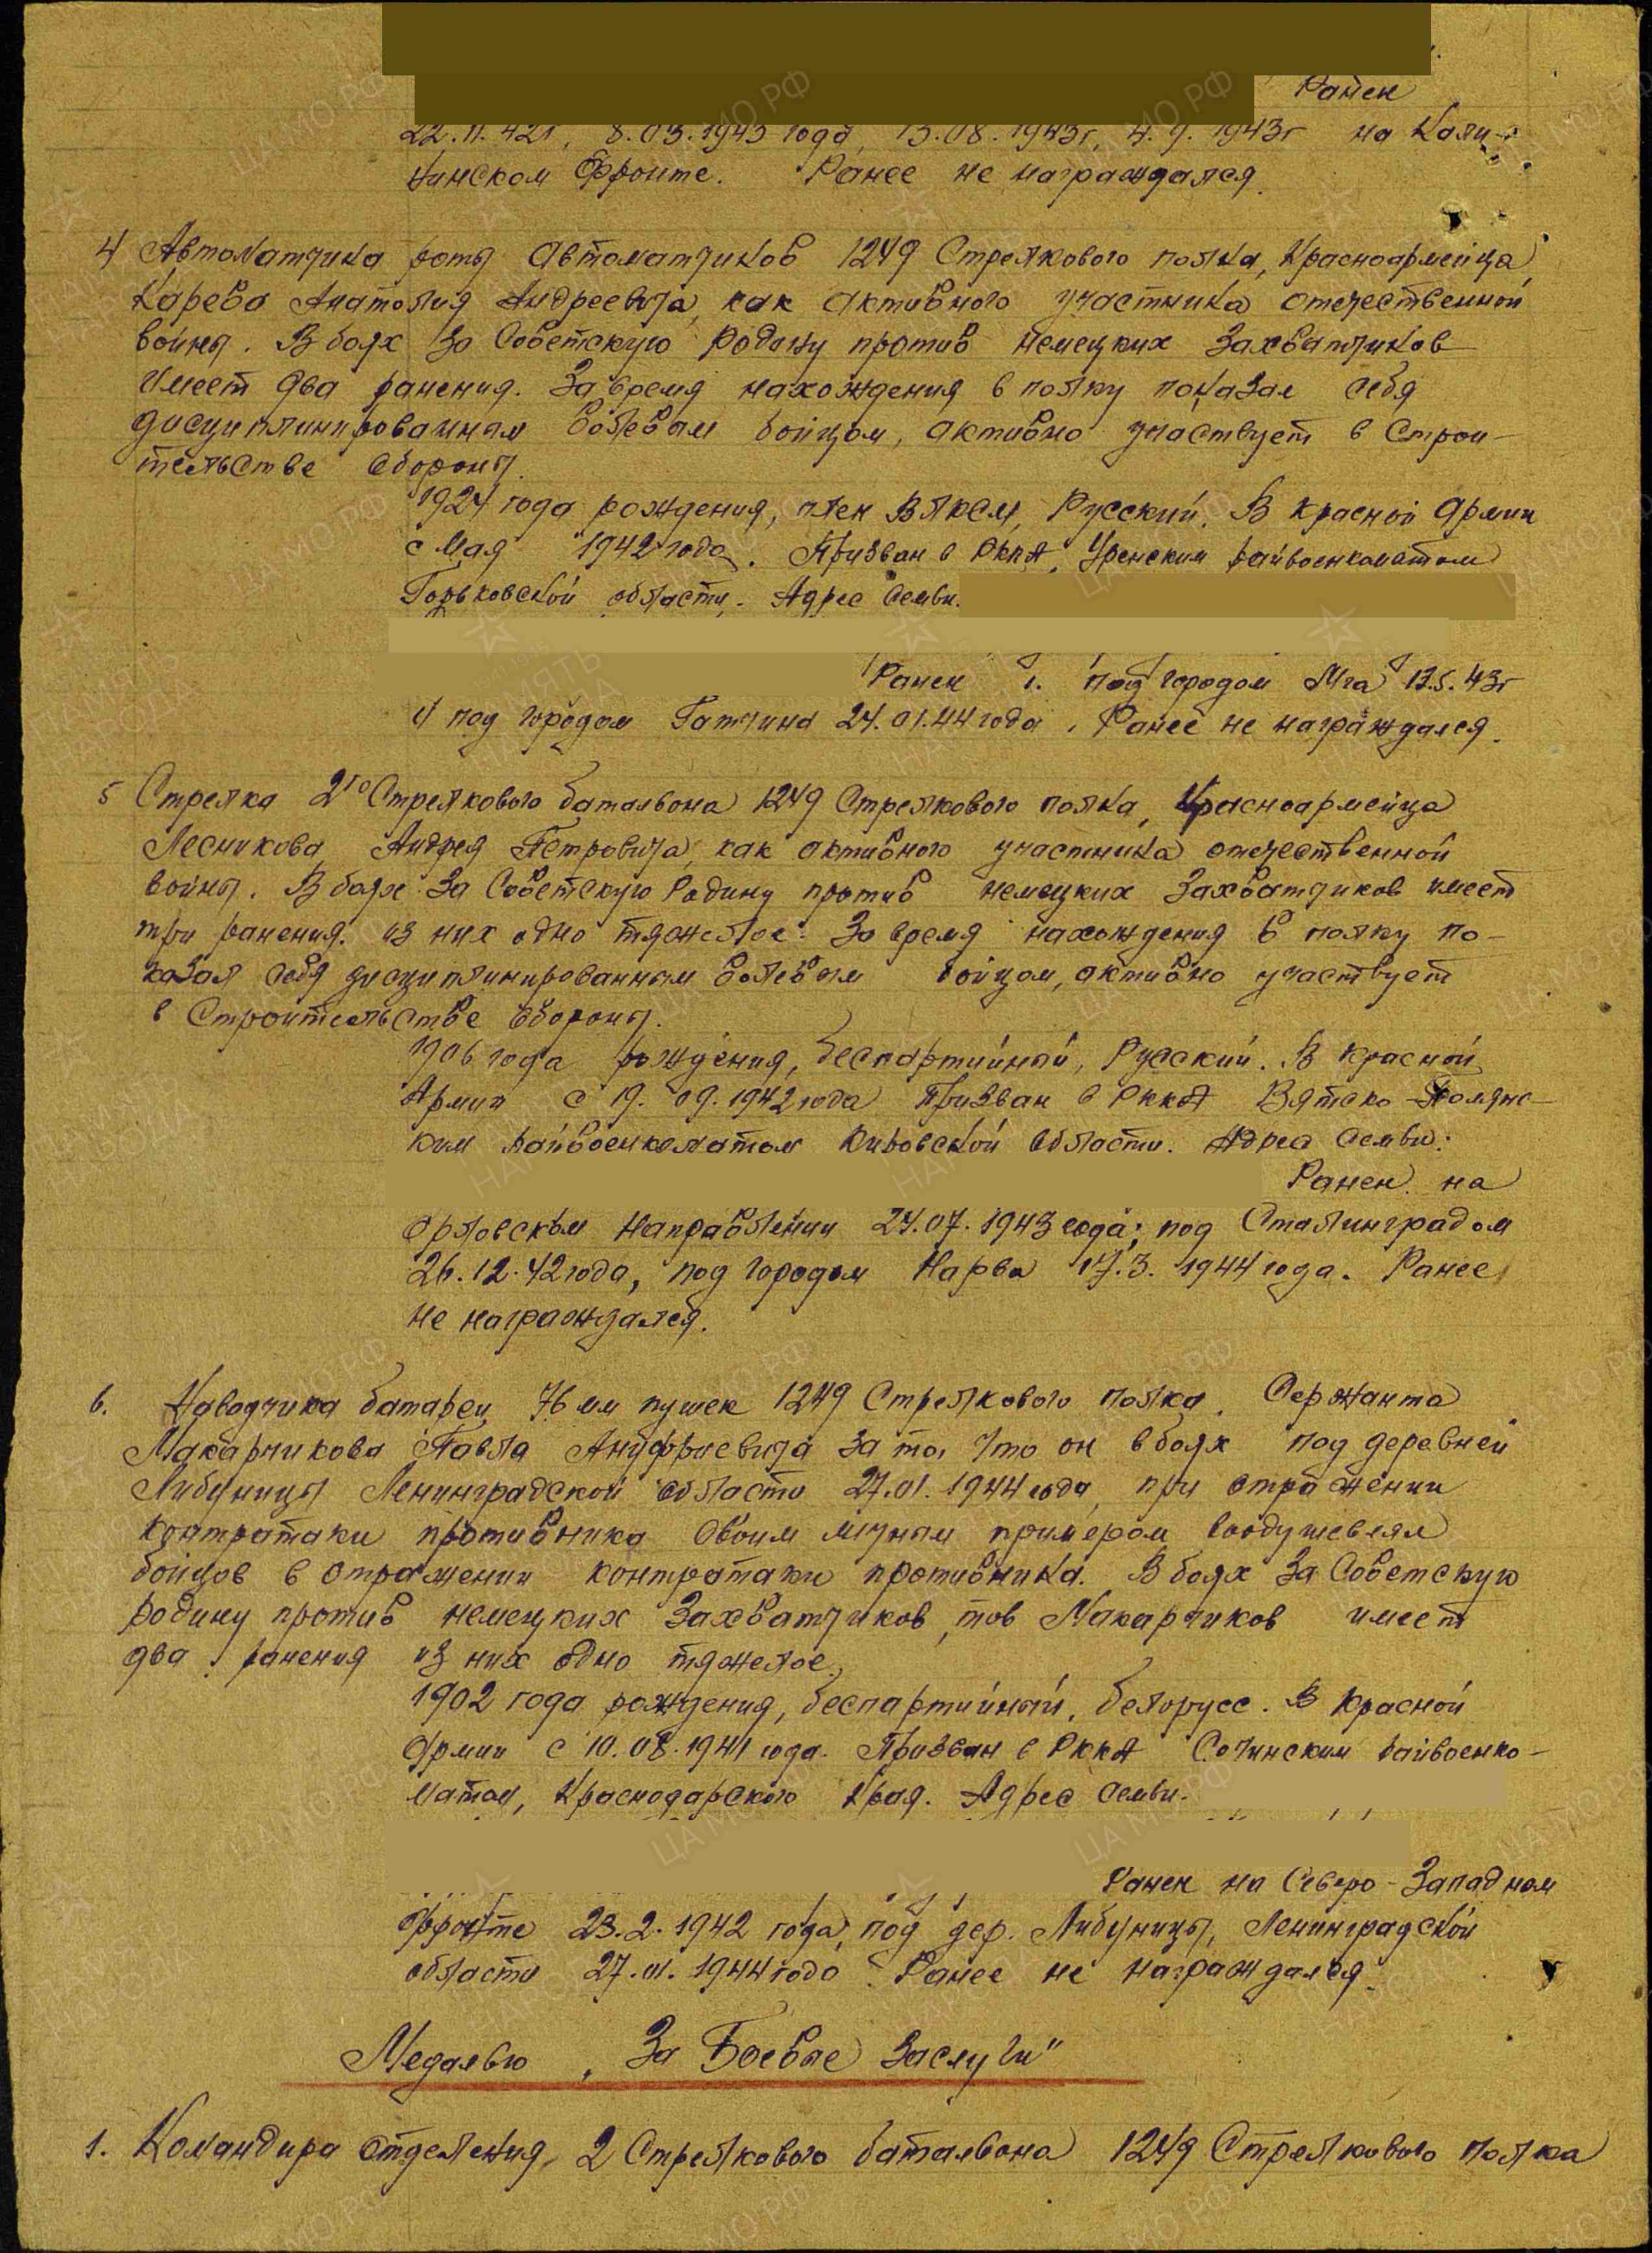 Ранен
22.11.42г, 8.03.1943 года, 13.08.1943г, 4.9.1943г на Кали-
нинском Фронте. Ранее не награждался.
4 Автоматчика роты автоматчиков 1249 Стрелкового полка, Красноармейца
Карева Анатолия Андреевича, как активного участника отечественной
войны. В боях за Советскую Родину против немецких захватчиков
имеет два ранения. За время нахождения в полку показал себя
дисциплинированным волевым бойцом, активно участвует в строи-
тельстве обороны.
1924 года рождения, член ВЛКСМ, Русский. В Красной Армии
с Мая 1942 года. Призван в РККА, Уренским райвоенкоматом
Горьковской области. Адрес семьи.
Ранен 1. под городом Мга 13.5.43г
и под городом Гатчина 24.01.44 года, Ранее не награждался.
5 Стрелка 2го Стрелкового батальона 1249 Стрелкового полка, Красноармейца
Лесникова Андрея Петровича, как активного участника отечественной
войны. В боях за Советскую Родину против немецких захватчиков имеет
три ранения. из них одно тяжелое. За время нахождения в полку по-
казал себя дисциплинированным волевым бойцом, активно участвует
в строительстве обороны.
1906 года рождения, беспартийный, Русский. В Красной
Армии с 19.09.1942 года Призван в РККА Вятско-Полянс-
ким райвоенкоматом Кировской области. Адрес семьи:
Ранен на
Орловском направлении 24.07.1943 года; под Сталинградом
26.12.42 года, под городом Нарва 17.3.1944 года. Ранее
не награждался.
6. Наводчика батареи 76 мм пушек 1249 Стрелкового полка. Сержанта
Макарчикова Павла Ануфриевича за то, что он в боях под деревней
Либуницы Ленинградской области 27.01.1944 года, при отражении
контратаки противника своим личным примером воодушевлял
бойцов в отражении контратаки противника. В боях за Советскую
родину против немецких захватчиков, тов Макарчиков имеет
два ранения из них одно тяжелое.
1902 года рождения, беспартийный, белорусс. В Красной
Армии с 10.08.1941 года. Призван в РККА Сочинским райвоенко-
матом, Краснодарского Края. Адрес семьи.
Ранен на Северо-Западном
фронте 23.2.1942 года, под дер. Либуницы, Ленинградской
области 27.01.1944 года. Ранее не награждался.
Медалью „За Боевые Заслуги"
1. Командира отделения, 2 Стрелкового батальона 1249 Стрелкового полка